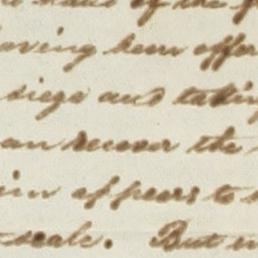 hand of the
having been offer
siege and taking
an recover the
appears to
scale. But